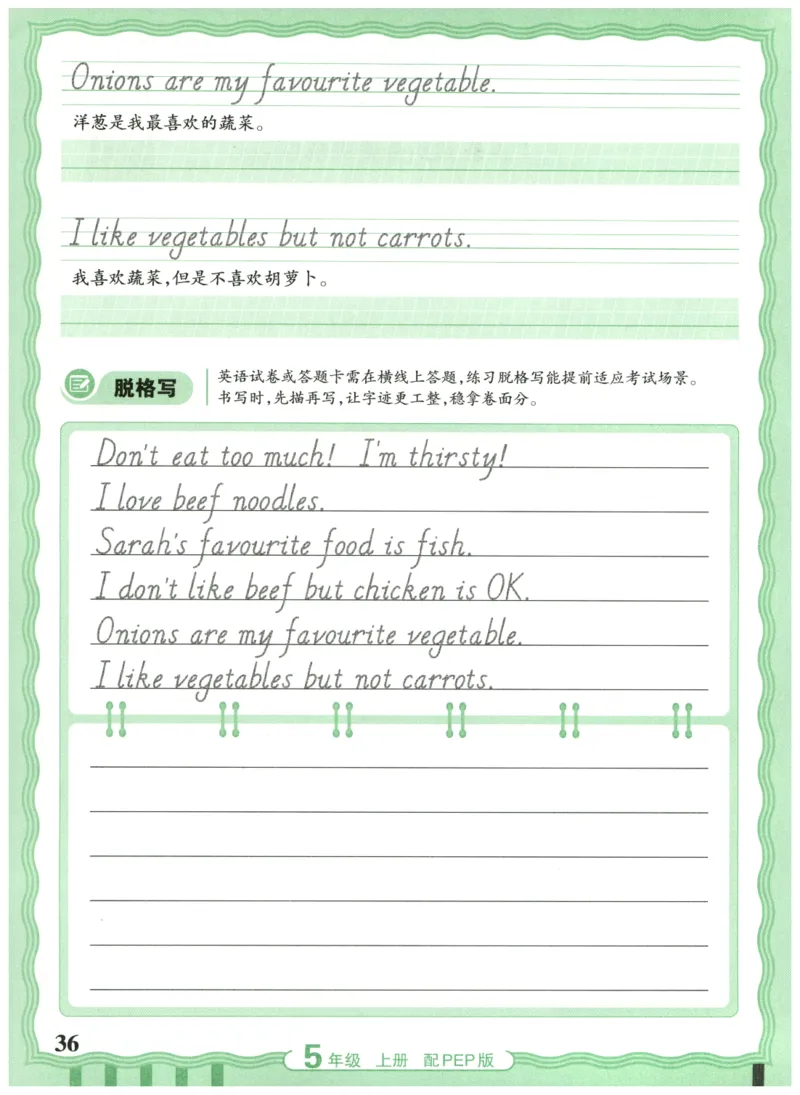 Onions are my favourite vegetable.
洋葱是我最喜欢的蔬菜。
I like vegetables but not carrots.
我喜欢蔬菜,但是不喜欢胡萝卜。
脱格写
英语试卷或答题卡需在横线上答题,练习脱格写能提前适应考试场景。
书写时,先描再写,让字迹更工整,稳拿卷面分。
Don't eat too much! I'm thirsty!
I love beef noodles.
Sarah's favourite food is fish.
I don't like beef but chicken is OK.
Onions are my favourite vegetable.
I like vegetables but not carrots.
36
5年级 上册 配PEP版